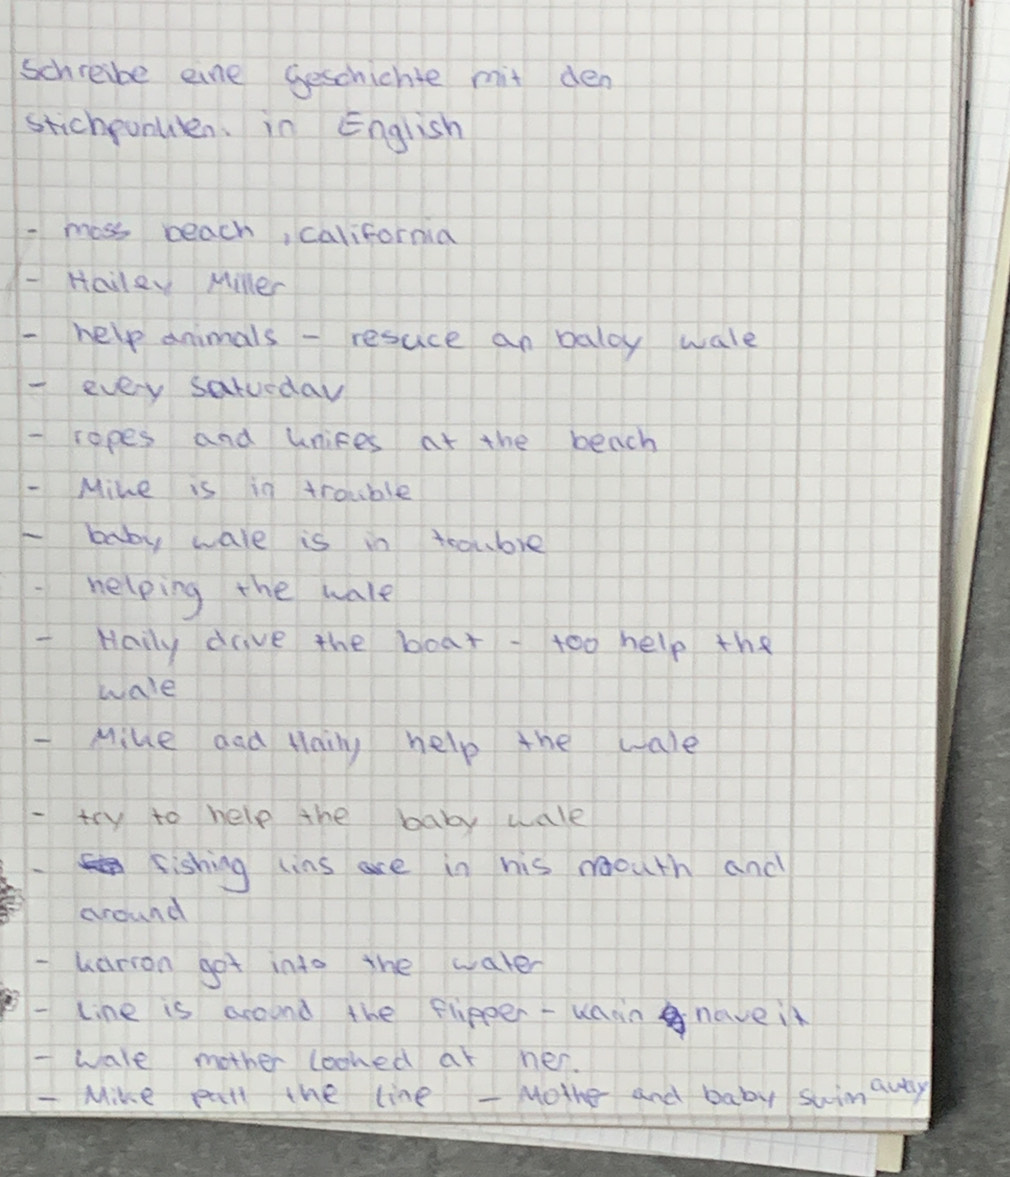 Schreibe eine Geschichte mit den
Stichpunkten. in English
- moss beach, california
- Hailey Miller
- help animals - resuce an baby wale
- every saturday
- ropes and knifes at the beach
- Mike is in trouble
- baby wale is in trouble
- helping the wale
- Haily drive the boat - too help the
wale
- Mike and Haily help the wale
- try to help the baby wale
- fishing lins are in his mouth and
around
- karron got into the water
- Line is around the flipper - karin have it
- wale mother looked at her.
- Mike pull the line - Mother and baby swim away